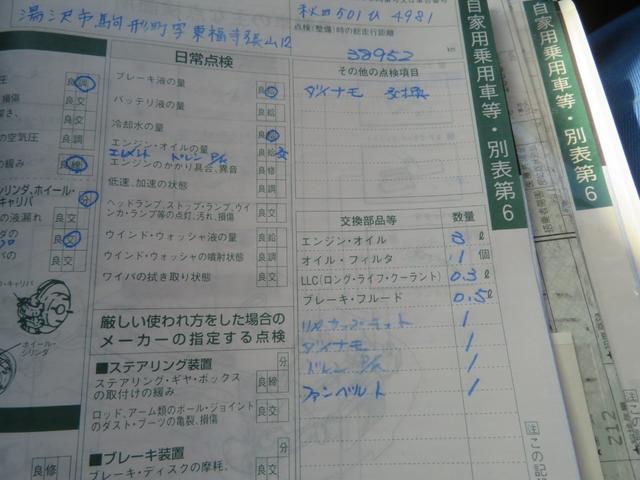 湯沢市駒形町字東福寺張山12
秋田501ひ4981
点検(整備)時の総走行距離
38952 km
自家用乗用車等・別表第6
自家用乗用車等・別表第6
日常点検
ブレーキ液の量
バッテリ液の量 良 給
冷却水の量
エンジン・オイルの量 良 給 交
エレメント ドレンP/K
エンジンのかかり具合、異音 良 修
低速、加速の状態 良 調
ヘッドランプ、ストップ・ランプ、ウイ
ンカ・ランプ等の点灯、汚れ、損傷 良 交
ウインド・ウォッシャ液の量 良 給
ウインド・ウォッシャの噴射状態 良 調
ワイパの拭き取り状態 良 交
その他の点検項目
ダイナモ 交換
の空気圧 良 調
の緩み
シリンダ、ホイール・
キャリパ
の液漏れ 良 交
ホイール・
シリンダ
良 修
厳しい使われ方をした場合の
メーカーの指定する点検
■ステアリング装置 分
ステアリング・ギヤ・ボックス
の取付けの緩み 良 締
ロッド、アーム類のボール・ジョイント
のダスト・ブーツの亀裂、損傷 良 交
■ブレーキ装置 分
ブレーキ・ディスクの摩耗、 良 交
交換部品等 数量
エンジン・オイル 3 ℓ
オイル・フィルタ 1 個
LLC(ロング・ライフ・クーラント) 0.3 ℓ
ブレーキ・フルード 0.5 ℓ
1
ダイナモ 1
ドレンP/K 1
ファンベルト 1
注 この記
212